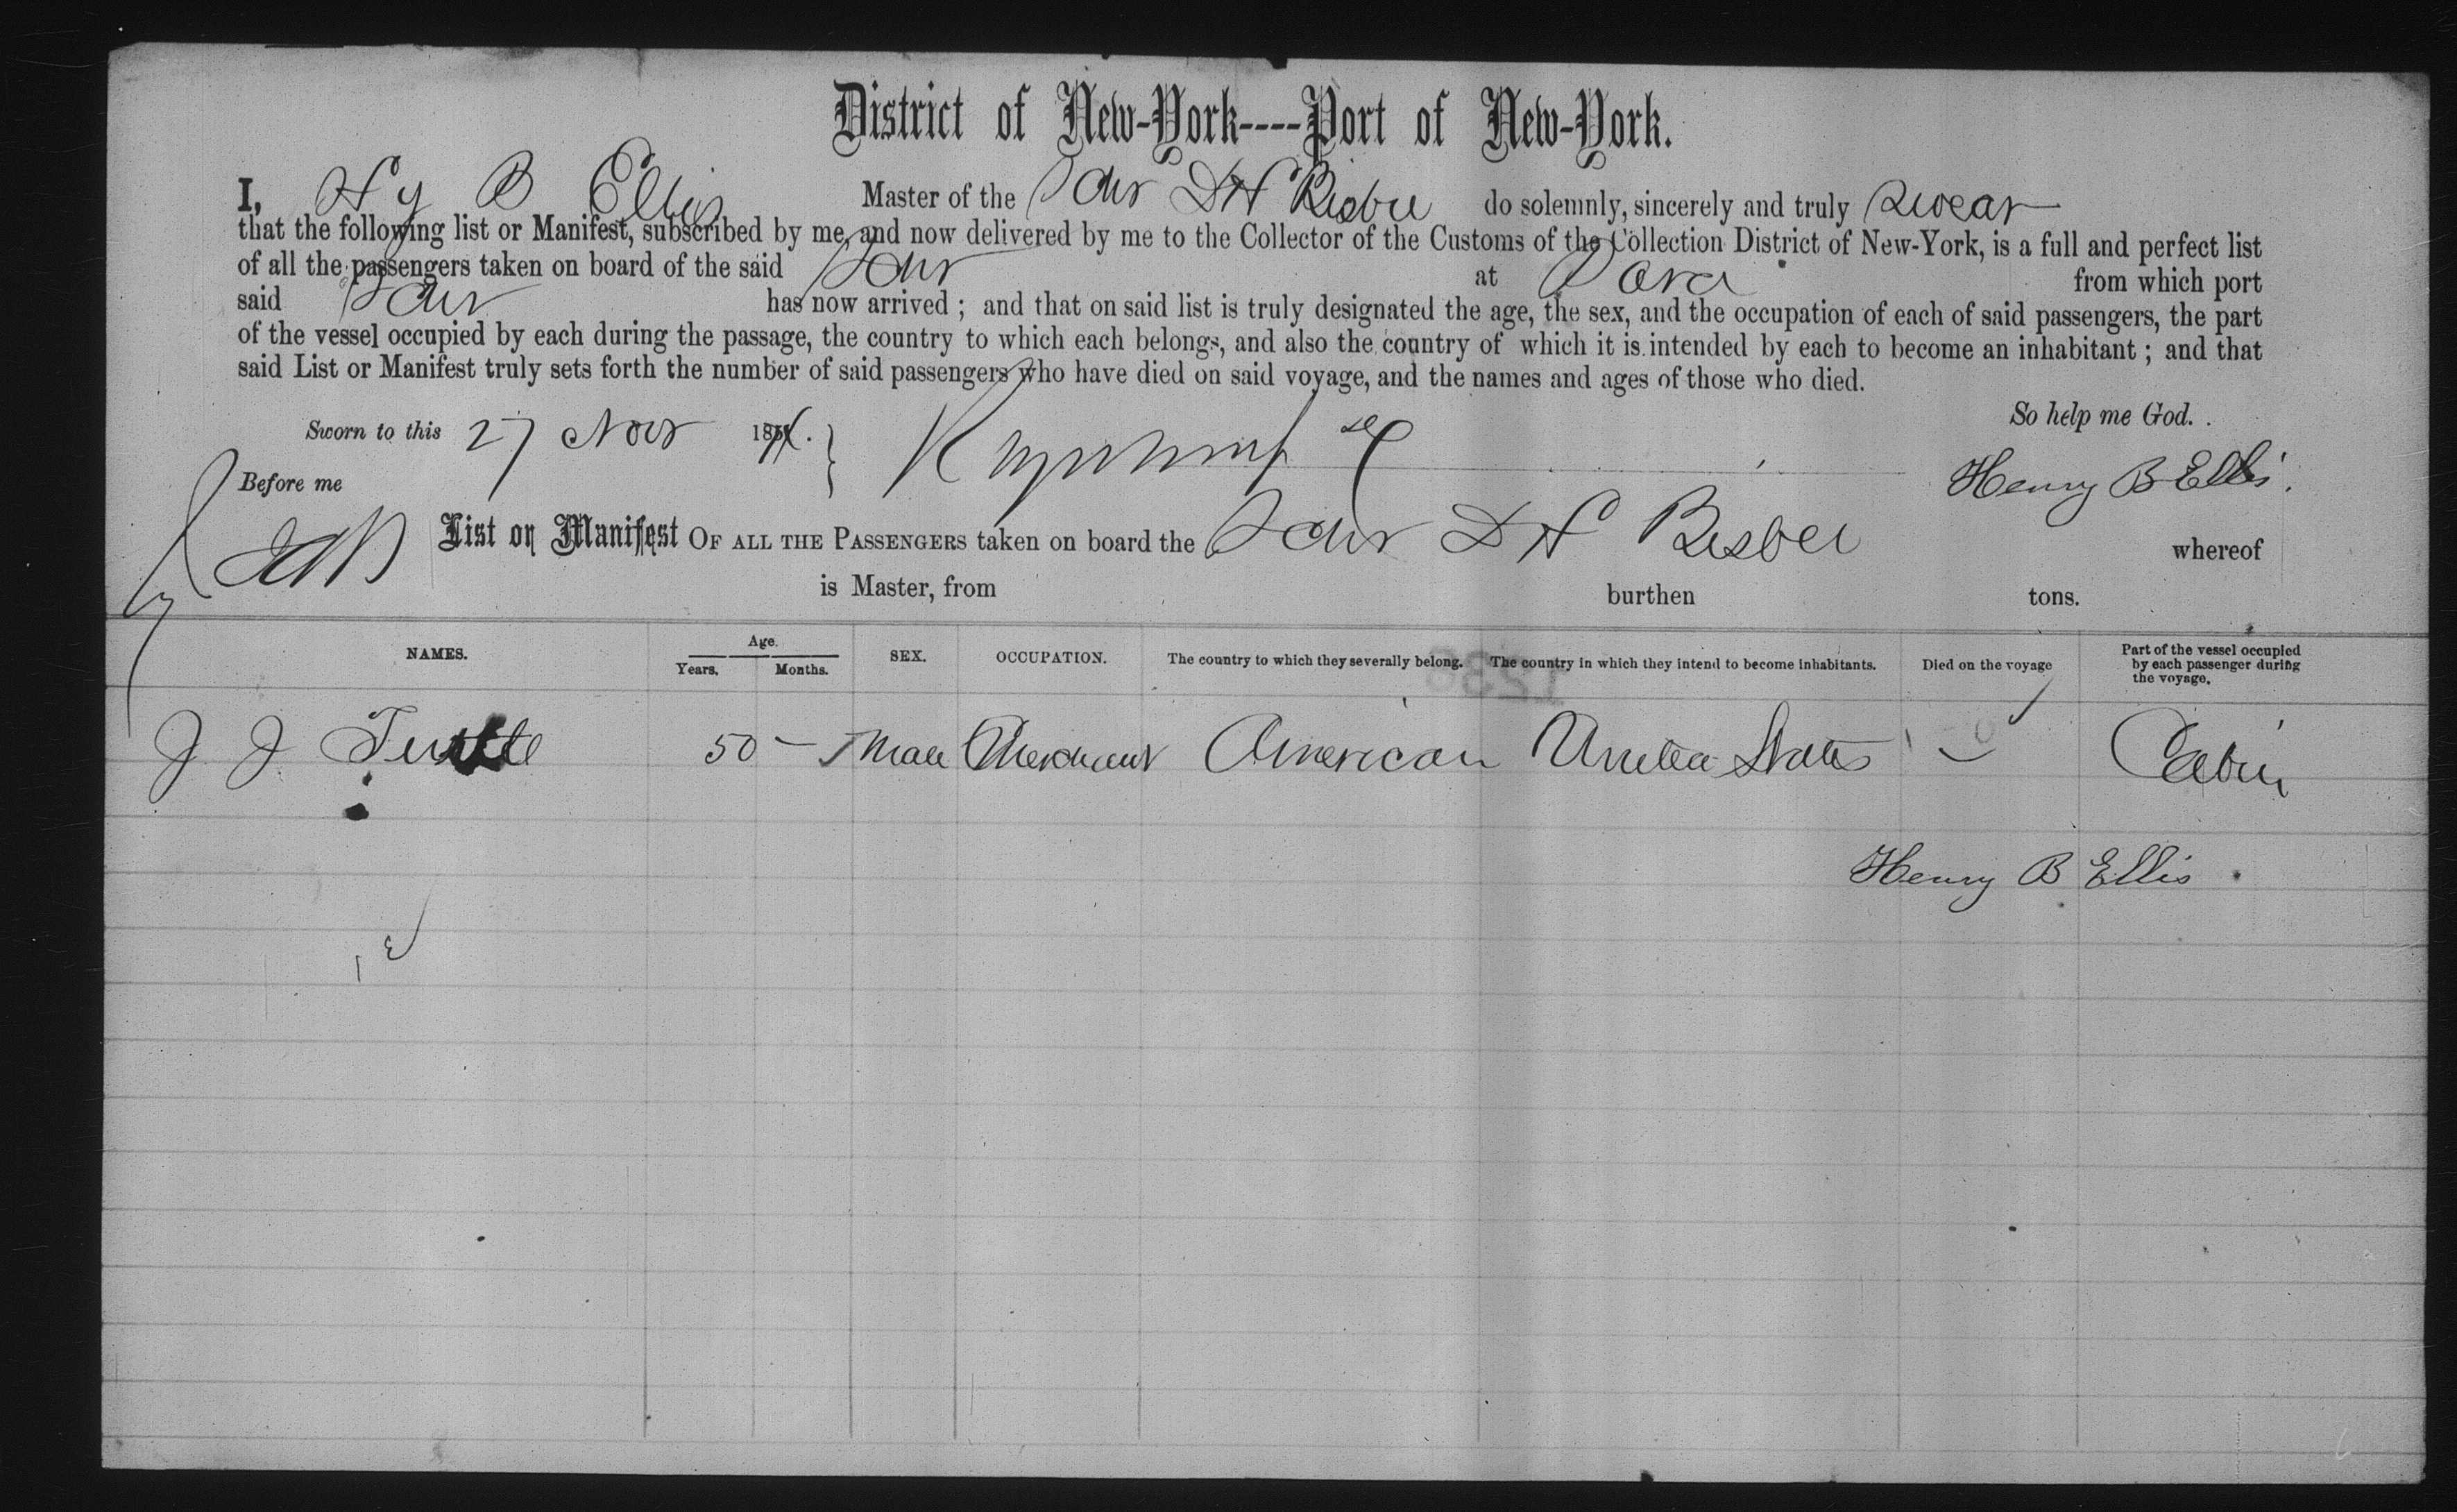 District of New-York----Port of New-York.
I, Hy B Ellis Master of the Schr D H Bisbee do solemnly, sincerely and truly swear
that the following list or Manifest, subscribed by me, and now delivered by me to the Collector of the Customs of the Collection District of New-York, is a full and perfect list
of all the passengers taken on board of the said Schr at Para from which port
said Schr has now arrived ; and that on said list is truly designated the age, the sex, and the occupation of each of said passengers, the part
of the vessel occupied by each during the passage, the country to which each belongs, and also the country of which it is intended by each to become an inhabitant ; and that
said List or Manifest truly sets forth the number of said passengers who have died on said voyage, and the names and ages of those who died.
So help me God.
Sworn to this 27 Novr 18
Before me
Henry B Ellis.
List or Manifest OF ALL THE PASSENGERS taken on board the Schr D H Bisbee whereof
is Master, from burthen tons.
NAMES. Age. Years. Months. SEX. OCCUPATION. The country to which they severally belong. The country in which they intend to become inhabitants. Died on the voyage Part of the vessel occupied by each passenger during the voyage.
J J 50 – Male Merchant American United States – Cabin
Henry B Ellis